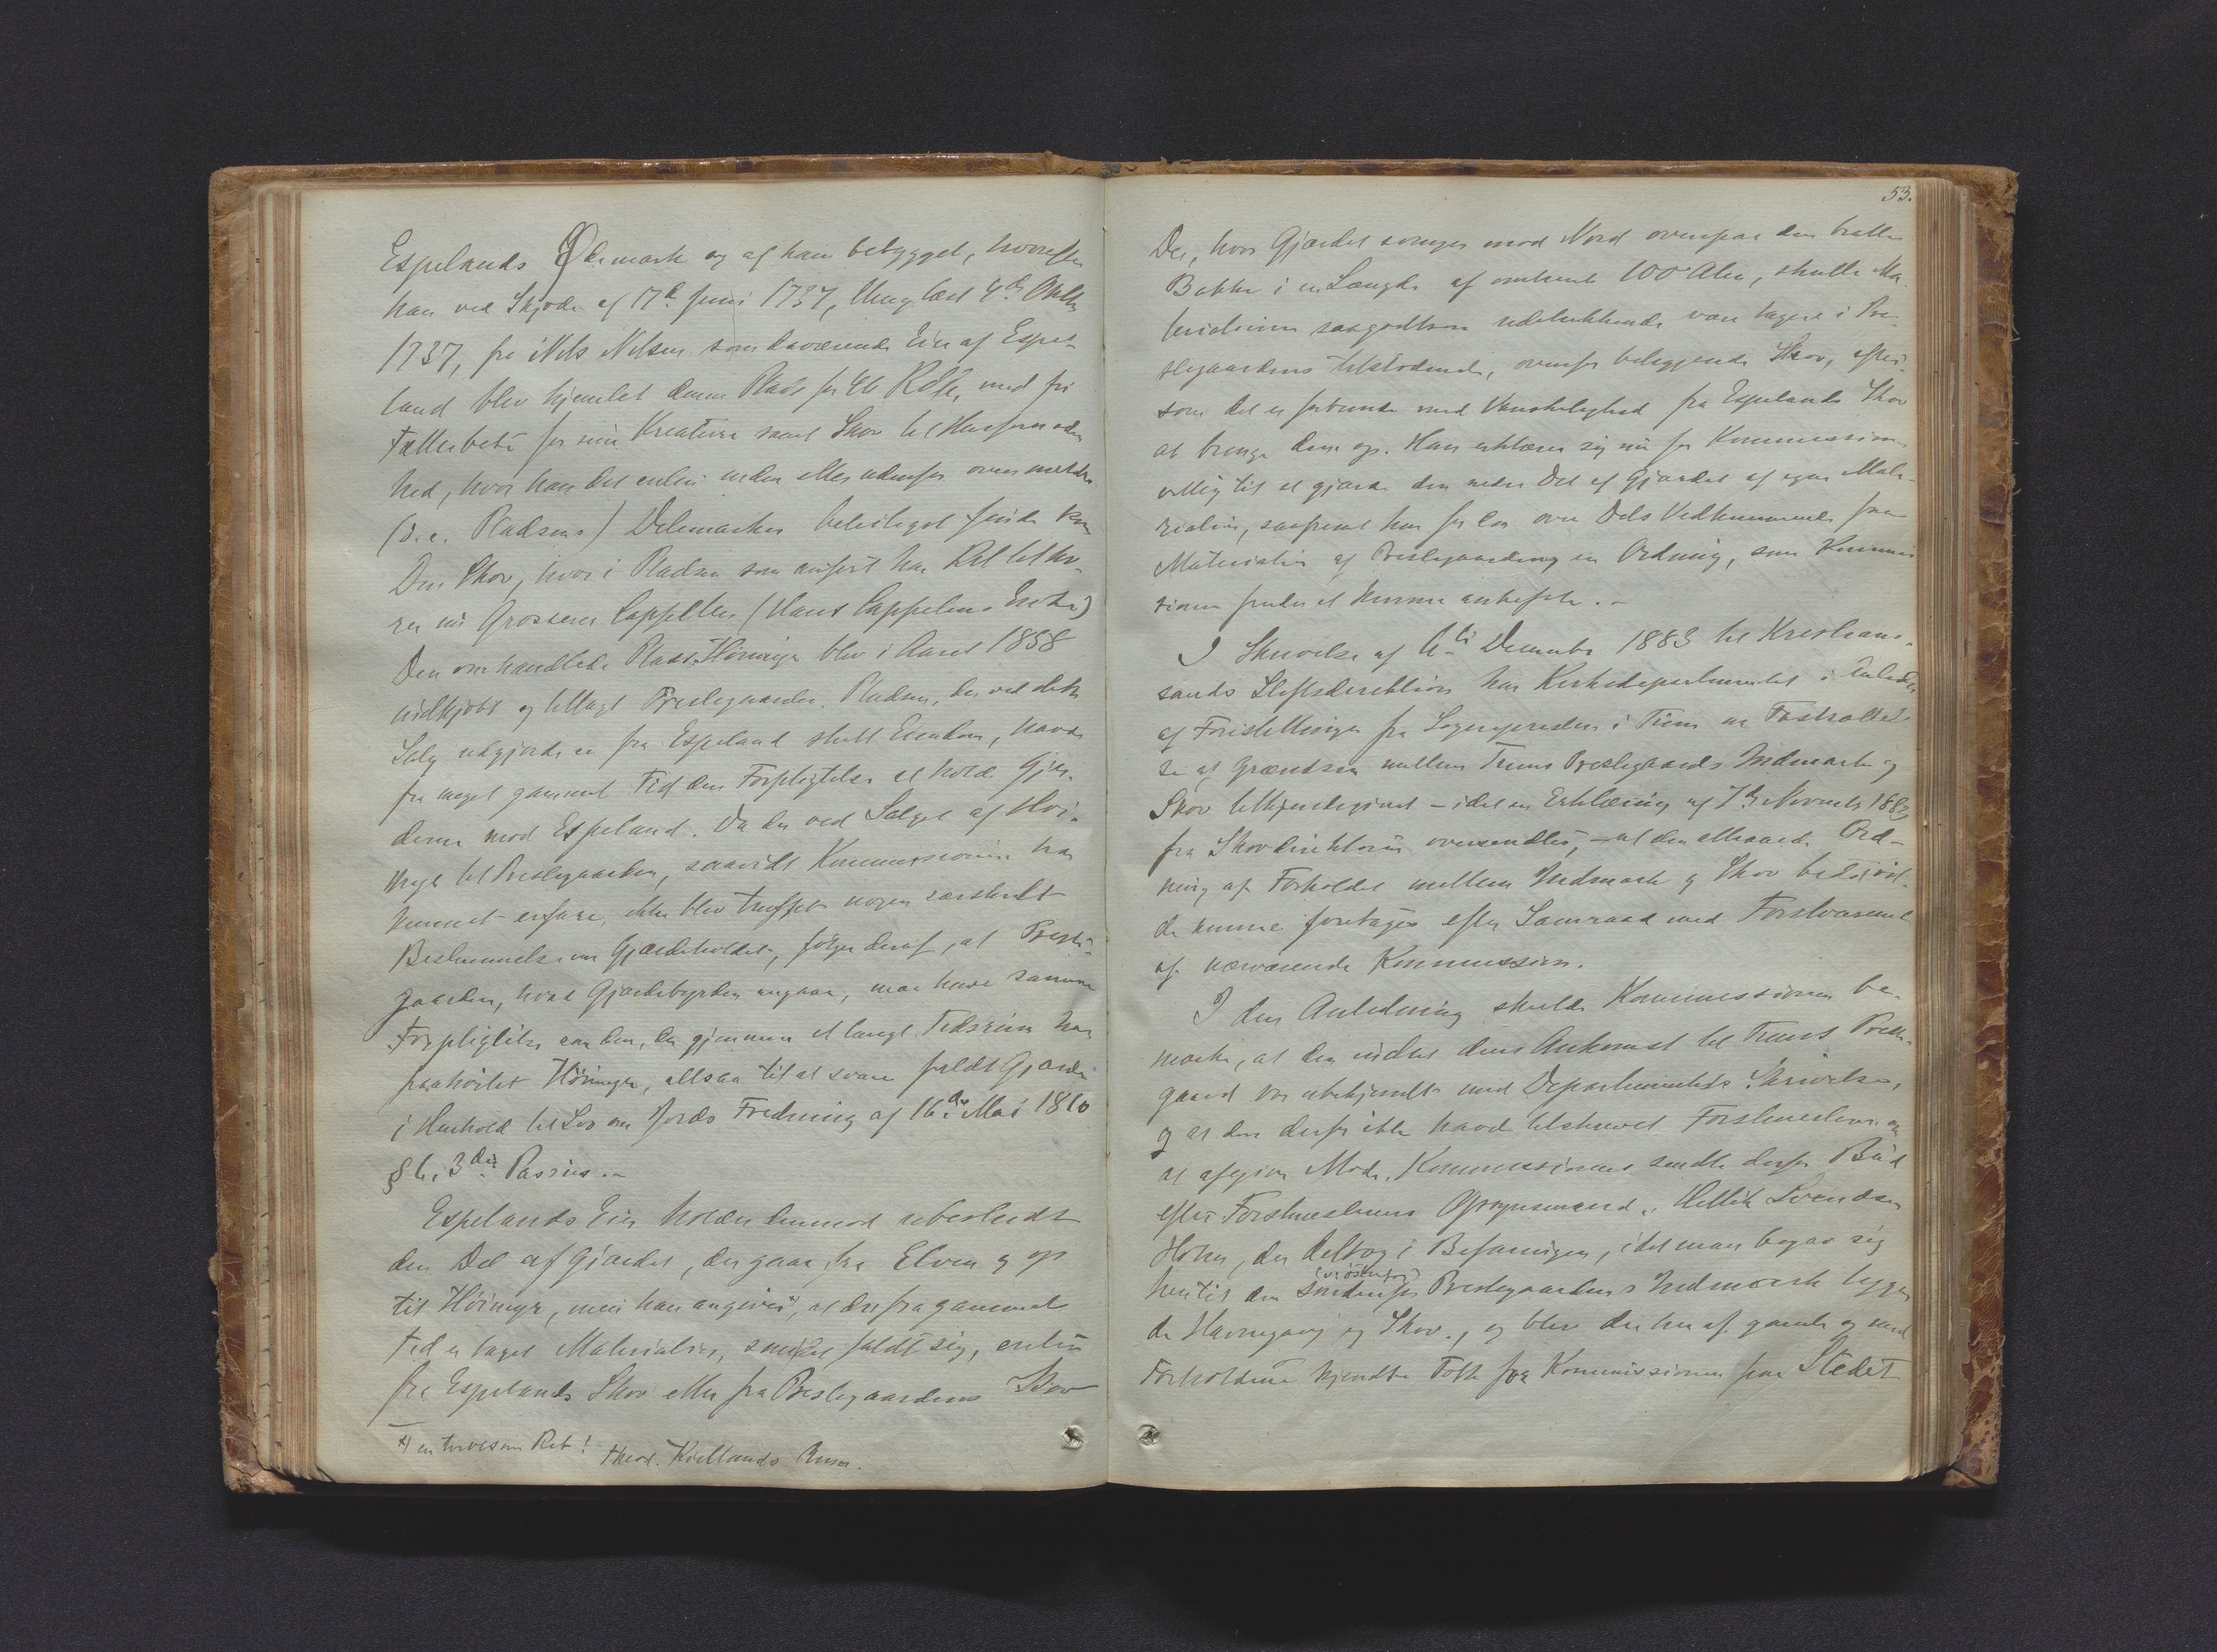 Espelands Ødemark og af ham bebygget, hvorefter
han ved Skjøde af 17de Juni 1737, thinglæst 4de Oktbr
1737, fra Niels Nielsen som daværende Eier af Espe-
land blev hjemlet denne Plads for 46 Rdlr, med fri
Fællesbeite for sine Kreature samt Skov til Husfornøden-
hed, hvor han det enten inden eller udenfor ovenmeldte
(d. e. Pladsens) Delemærker beleiligst finde kan
Den Skov, hvori Pladsen som anført har Ret tilhø-
rer nu Grosserer Cappelen (Hans Cappelens Enke)
Den omhandlede Plads Höimyr blev i Aaret 1858
indkjøbt og tillagt Præstegaarden. Pladsen, der ved dette
Salg udgjorde en fra Espeland skilt Eiendom, havde
fra meget gammel Tid den Forpligtelse at holde Gjær-
derne mod Espeland. Da der ved Salget af Høi-
myr til Præstegaarden, saavidt Kommissionen har
kunnet erfare, ikke blev truffet nogen særskilt
Bestemmelse om Gjærdeholdet, følger deraf, at Præste-
gaarden, hvad Gjærdebyrden angaar, maa have samme
Forpligtelse som den, der gjennem et langt Tidsrum har
paahvilet Höimyr, altsaa til at svare fuldt Gjærde
i Henhold til Lov om Jords Fredning af 16de Mai 1860
§ 6, 3die Passus.–
Espelands Eier holder derimod ubesluttet
den Del af Gjærdet, der gaar fra Elven og op
til Höimyr, men han angiver, at der fra gammel
Tid er taget Materialier, som det faldt sig, enten
fra Espelands Skov eller fra Præstegaardens Skov
x) en tvilsom Ret! Theod. Kiellands Anm.
53.
Der, hvor Gjærdet svinger mod Nord ovenpaa den bratte
Bakke i en Længde af omtrent 100 Alen, skulle Ma-
terialierne saagodtsom udelukkende være tagne i Præ-
stegaardens tilstødende, ovenfor beliggende Skov, efter-
som det er forbunden med Vanskelighed fra Espelands Skov
at bringe dem op. Han erklærer sig nu for Kommissionen
villig til at gjærde den nedre Del af Gjærdet af egne Mate-
rialier, saafremt han for den øvre Dels Vedkommende faar
Materialier af Præstegaarden, en Ordning, som Kommis-
sionen finder at kunne anbefale.–
I Skrivelse af 6te December 1883 til Kristians-
sands Stiftsdirektion har Kirkedepartementet i Anledn
af Forestillinger fra Sognepræsten i Tinn om Fastsættel-
se af Grændsen mellem Tinns Præstegaards Indmark og
Skov tilkjendegivet – idet en Erklæring af 7de Novembr 1883
fra Skovdirektøren oversendtes, – at den attraaede Ord-
ning af Forholdet mellem Indmark og Skov
de kunne foretages efter Samraad med Forstvæsenet
af nærværende Kommission.
I den Anledning skulde Kommissionen be-
mærke, at den indtil dens Ankomst til Tinns Præste-
gaard var ubekjendt med Departementets Skrivelse,
og at den derfor ikke havde tilskrevet Forstmesteren om
at afgive Møde. Kommissionen sendte derfor Bud
efter Forstmesterens Opsynsmand, Hellik Svendsen
Hohn, der deltog i Befaringen, idet man begav sig
hen til den (v: østenfor) søndenfor Præstegaardens Indmark liggen-
de Havnegang og Skov, og blev der her af gamle og med
Forholdene kjendte Folk for Kommissionen paa Stedet